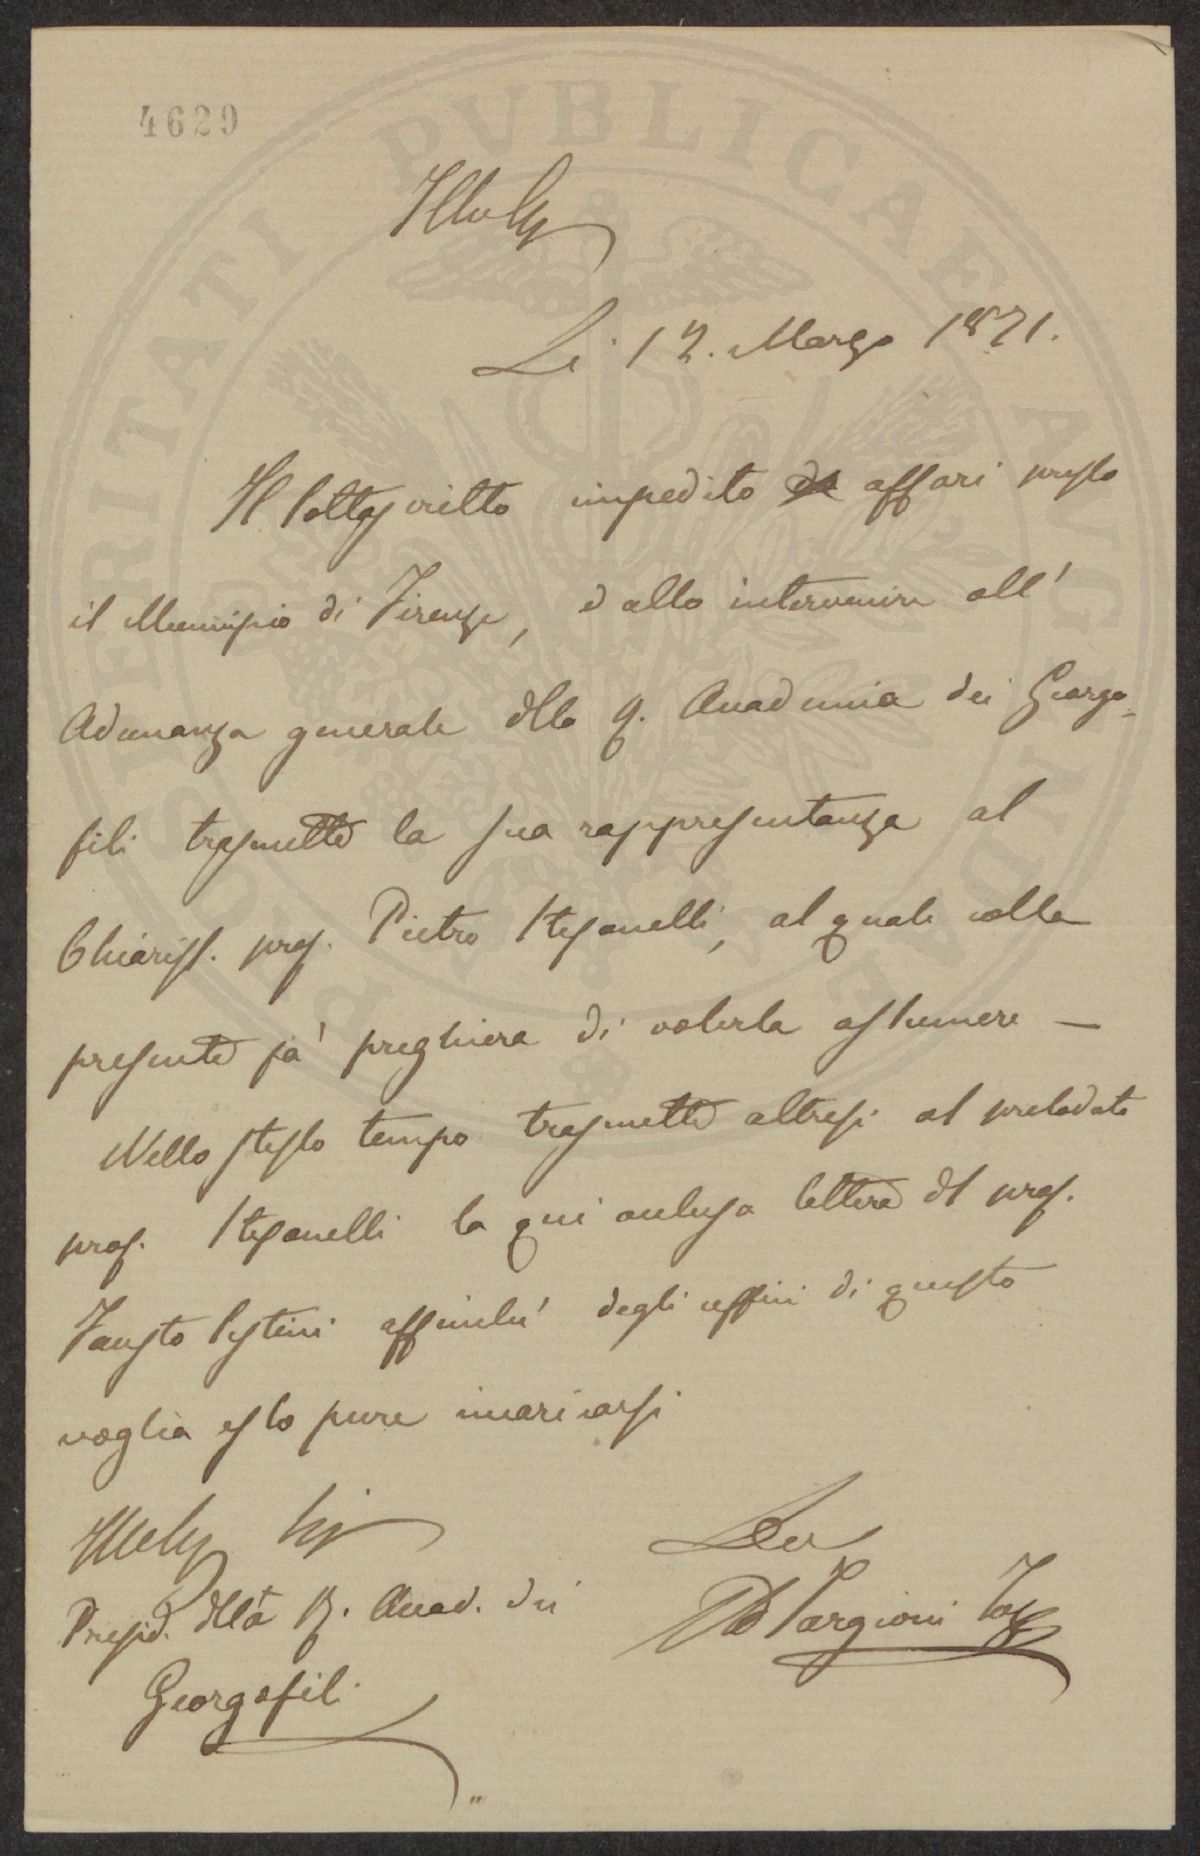 4629
PROSPERITATI PVBLICAE AVGENDAE
Li 12. Marzo 1871.
Il Sottoscritto impedito da affari presso
il Municipio di Firenze, dallo intervenire all'
Adunanza generale della R. Accademia dei Georgo-
fili trasmette la sua rappresentanza al
Chiariss. prof. Pietro Stefanelli, al quale colla
presente fa preghiera di volerla assumere —
Nello stesso tempo trasmette altresì al prelodato
prof. Stefanelli la qui acclusa lettera del prof.
Fausto Sestini affinché degli uffici di questo
voglia esso pure incaricarsi
Presid. della R. Accad. dei
Georgofili
Targioni Tozz